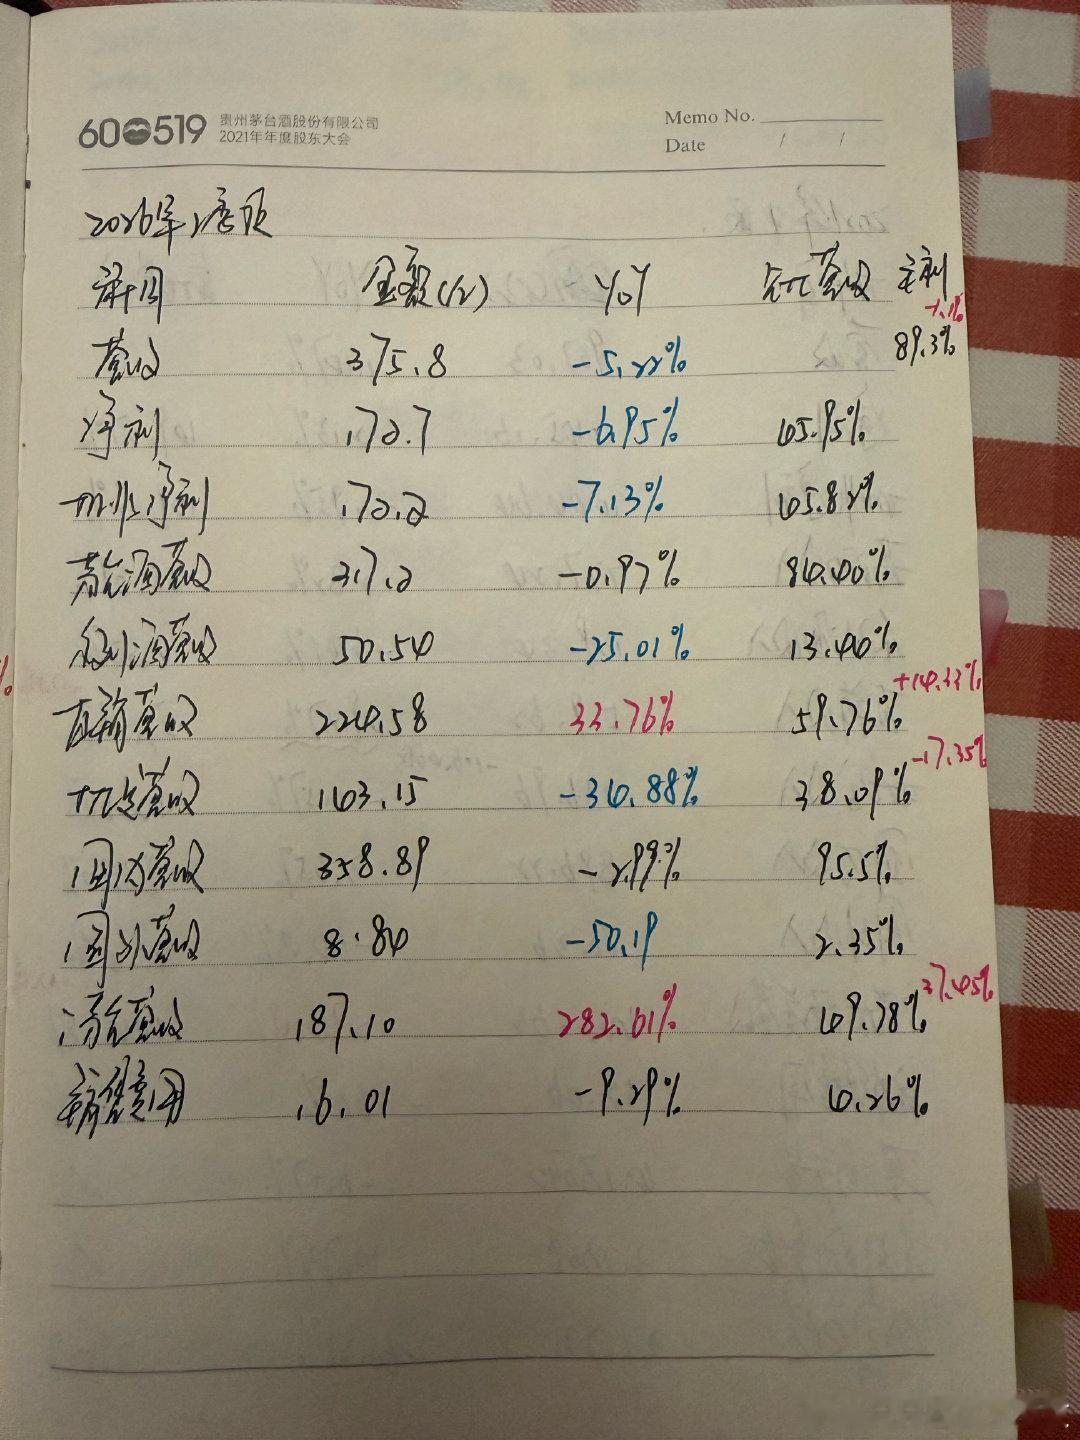 600519 贵州茅台酒股份有限公司
2021年年度股东大会
Memo No.
Date / /
科目 金额(亿) YoY 占比营收 毛利
-1.1%
营收 375.8 -5.22% 89.3%
净利 172.7 -6.95% 45.95%
扣非净利 172.2 -7.13% 45.82%
茅台酒营收 317.2 -0.97% 84.40%
系列酒营收 50.54 -25.01% 13.40%
+14.33%
直销营收 224.58 33.76% 59.76%
-17.35%
批发营收 143.15 -34.88% 38.09%
国内营收 358.89 -2.99% 95.5%
国外营收 8.84 -50.19 2.35%
37.45%
i茅台营收 187.10 282.61% 49.78%
销售费用 16.01 -9.29% 4.26%